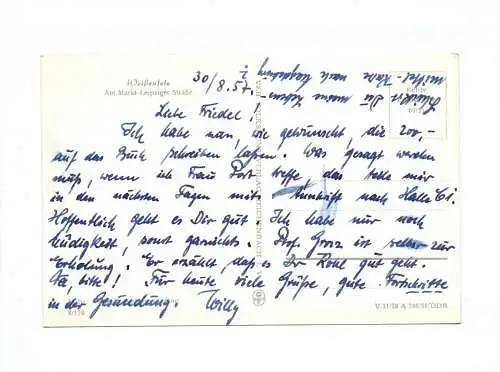 Weißenfels
Am Markt-Leipziger Straße
30/8.57.
Liebe Friedel!
Ich habe nun, wie gewünscht, die 200,-
auf das Buch schreiben lassen. Was gesagt werden
muß, wenn ich Frau Post treffe das teile mir
in den nächsten Tagen mit. Anschrift nach Halle C1.
Hoffentlich geht es Dir gut. Ich habe nur noch
Müdigkeit, sonst garnichts. Prof. Grosz ist selber zur
Erholung. Er erzählt, daß es Dr Rohl gut geht.
Na, bitte! Für heute viele Grüße, gute Fortschritte
in der Gesundung. Willy